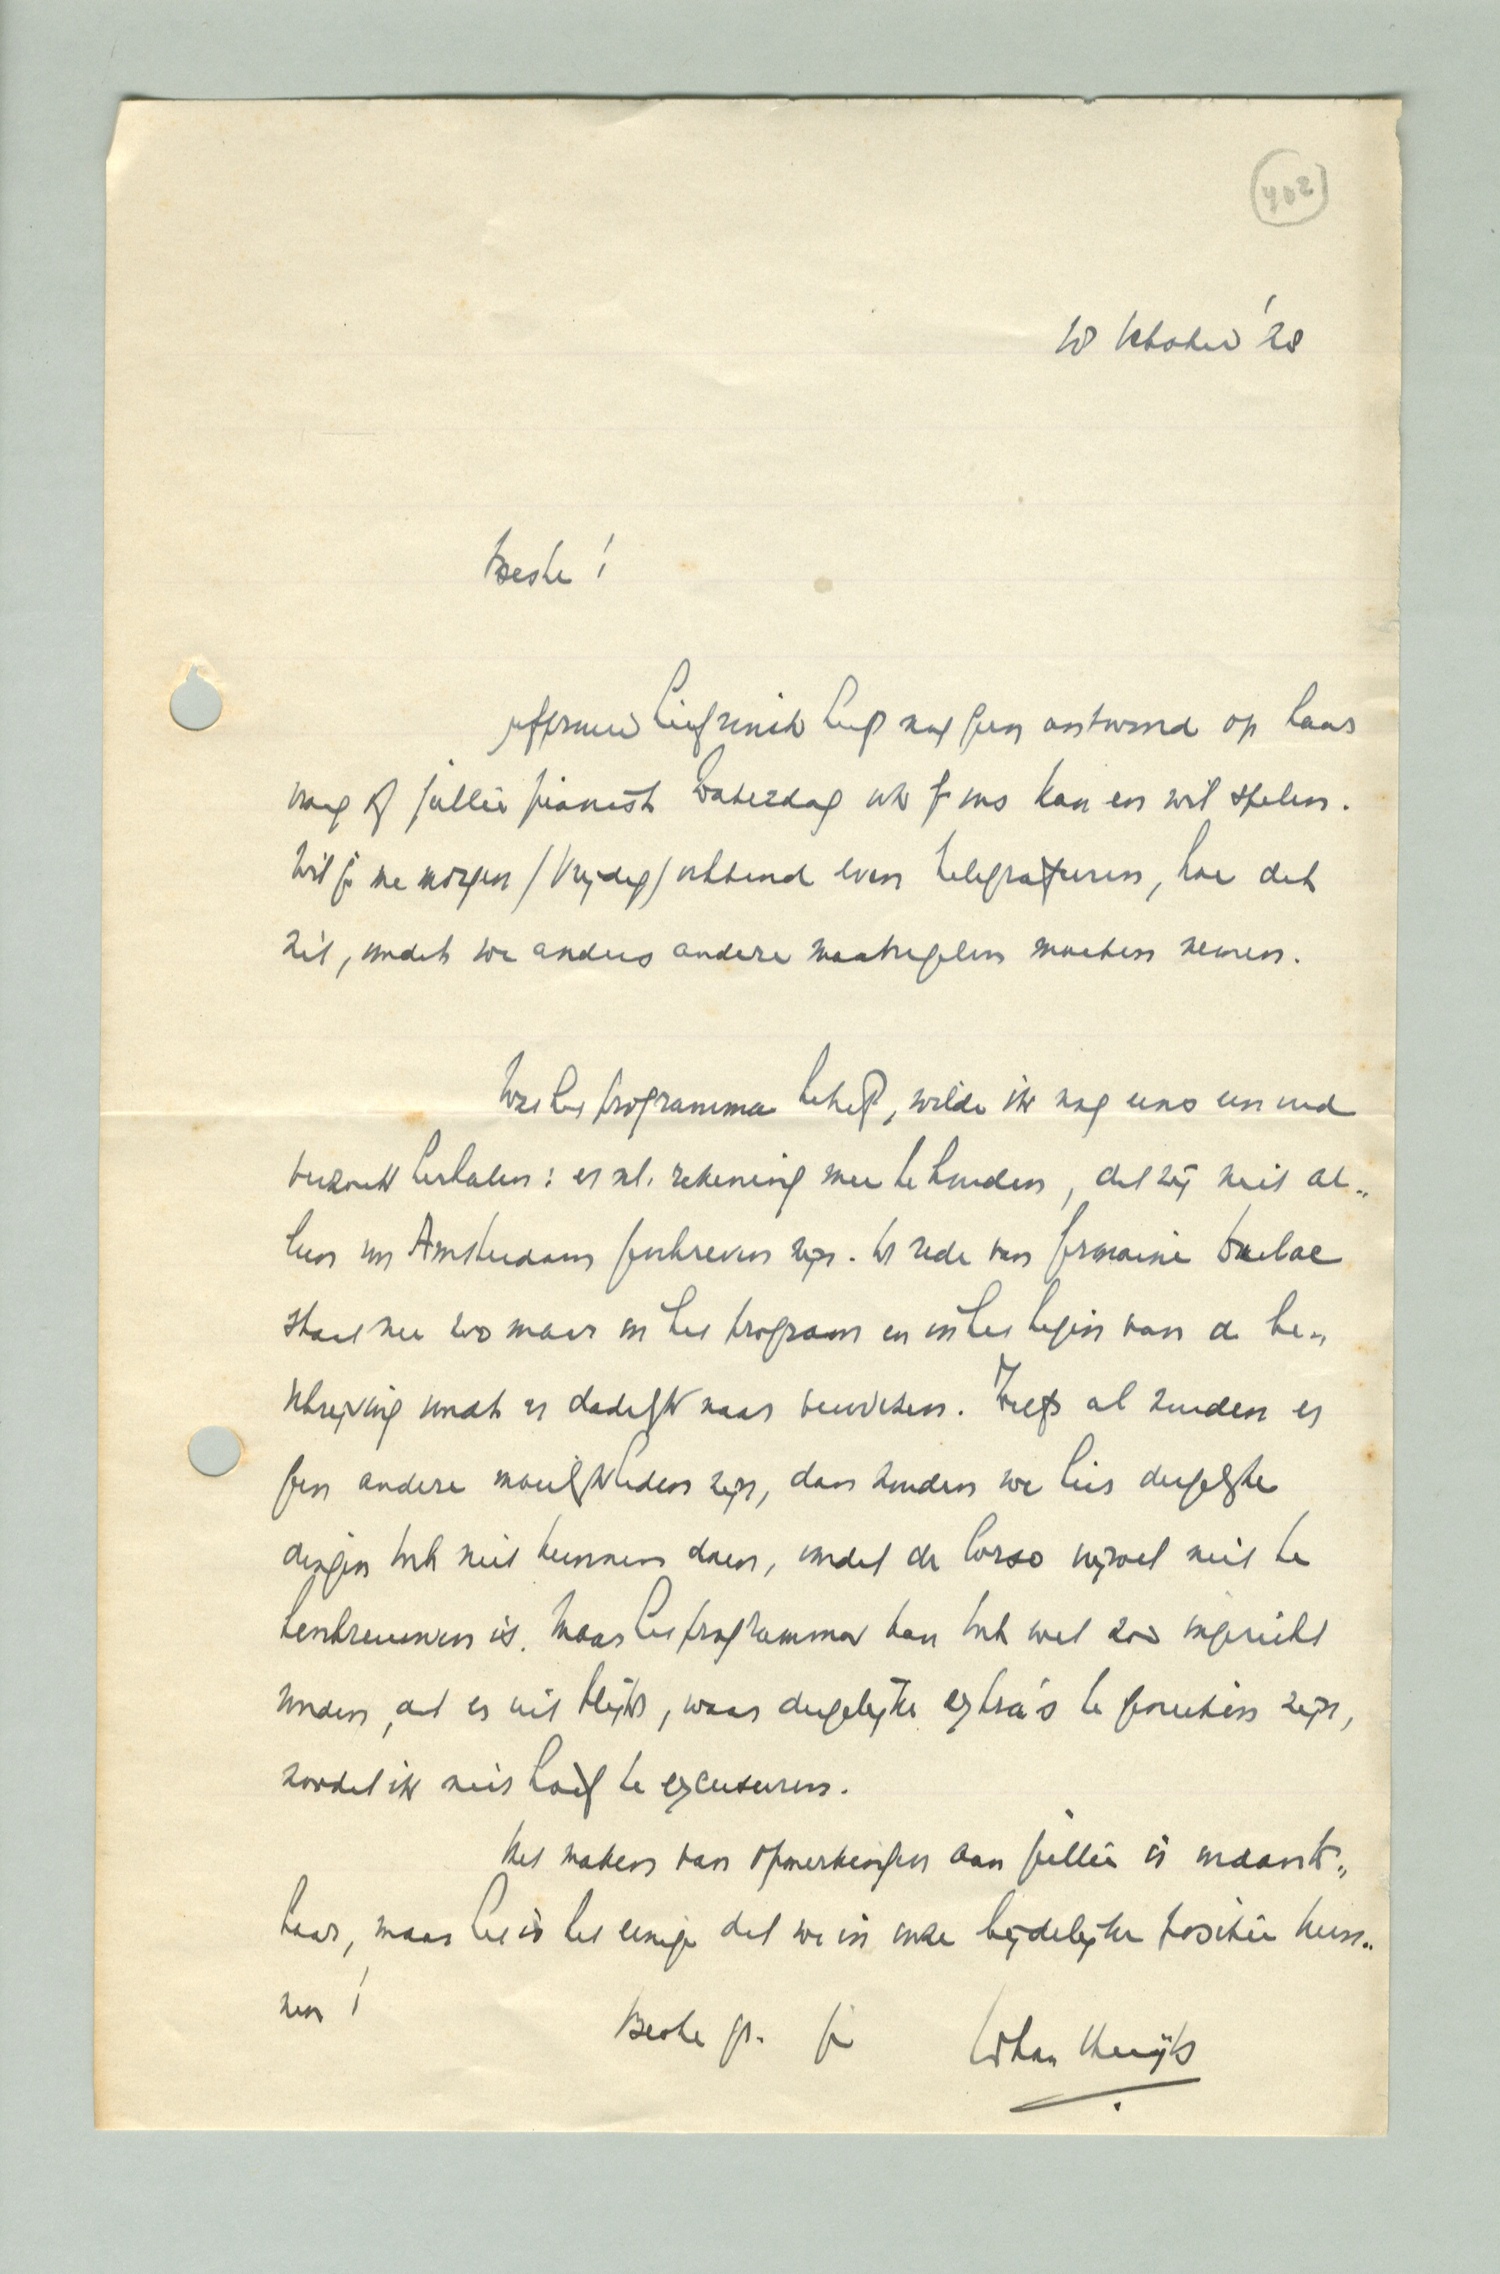 402
18 October '28
Beste!
Juffrouw Liefrinck heeft nog geen antwoord op haar
vraag of jullie pianist Zaterdag ook b/ ons kan en wil spelen.
Wil je me morgen /Vrijdag/ ochtend even telegrafeeren, hoe dat
zit, omdat we anders andere maatregelen moeten nemen.
Wat het programma betreft, wilde ik nog eens een oud
verzoek herhalen: er nl. rekening mee te houden, dat zij niet al-
leen in Amsterdam geschreven zijn. De rede van Germaine Dulac
staat nu zoo maar in het program en in het begin van de be-
schrijving wordt er dadelijk naar verwezen. Zelfs al zouden er
geen andere moeilijkheden zijn, dan zouden we hier dergelijke
dingen toch niet kunnen doen, omdat de Corso vrijwel niet te
is. Maar het programma kan toch wel zoo ingericht
worden, dat er uit blijkt, waar dergelijke extra's te genieten zijn,
zoodat ik niet hoef te excuseeren.
Het maken van opmerkingen aan jullie is ondank-
baar, maar het is het eenige dat we in onze lijdelijke positie kun-
nen!
Beste gr. je Johan Huijts